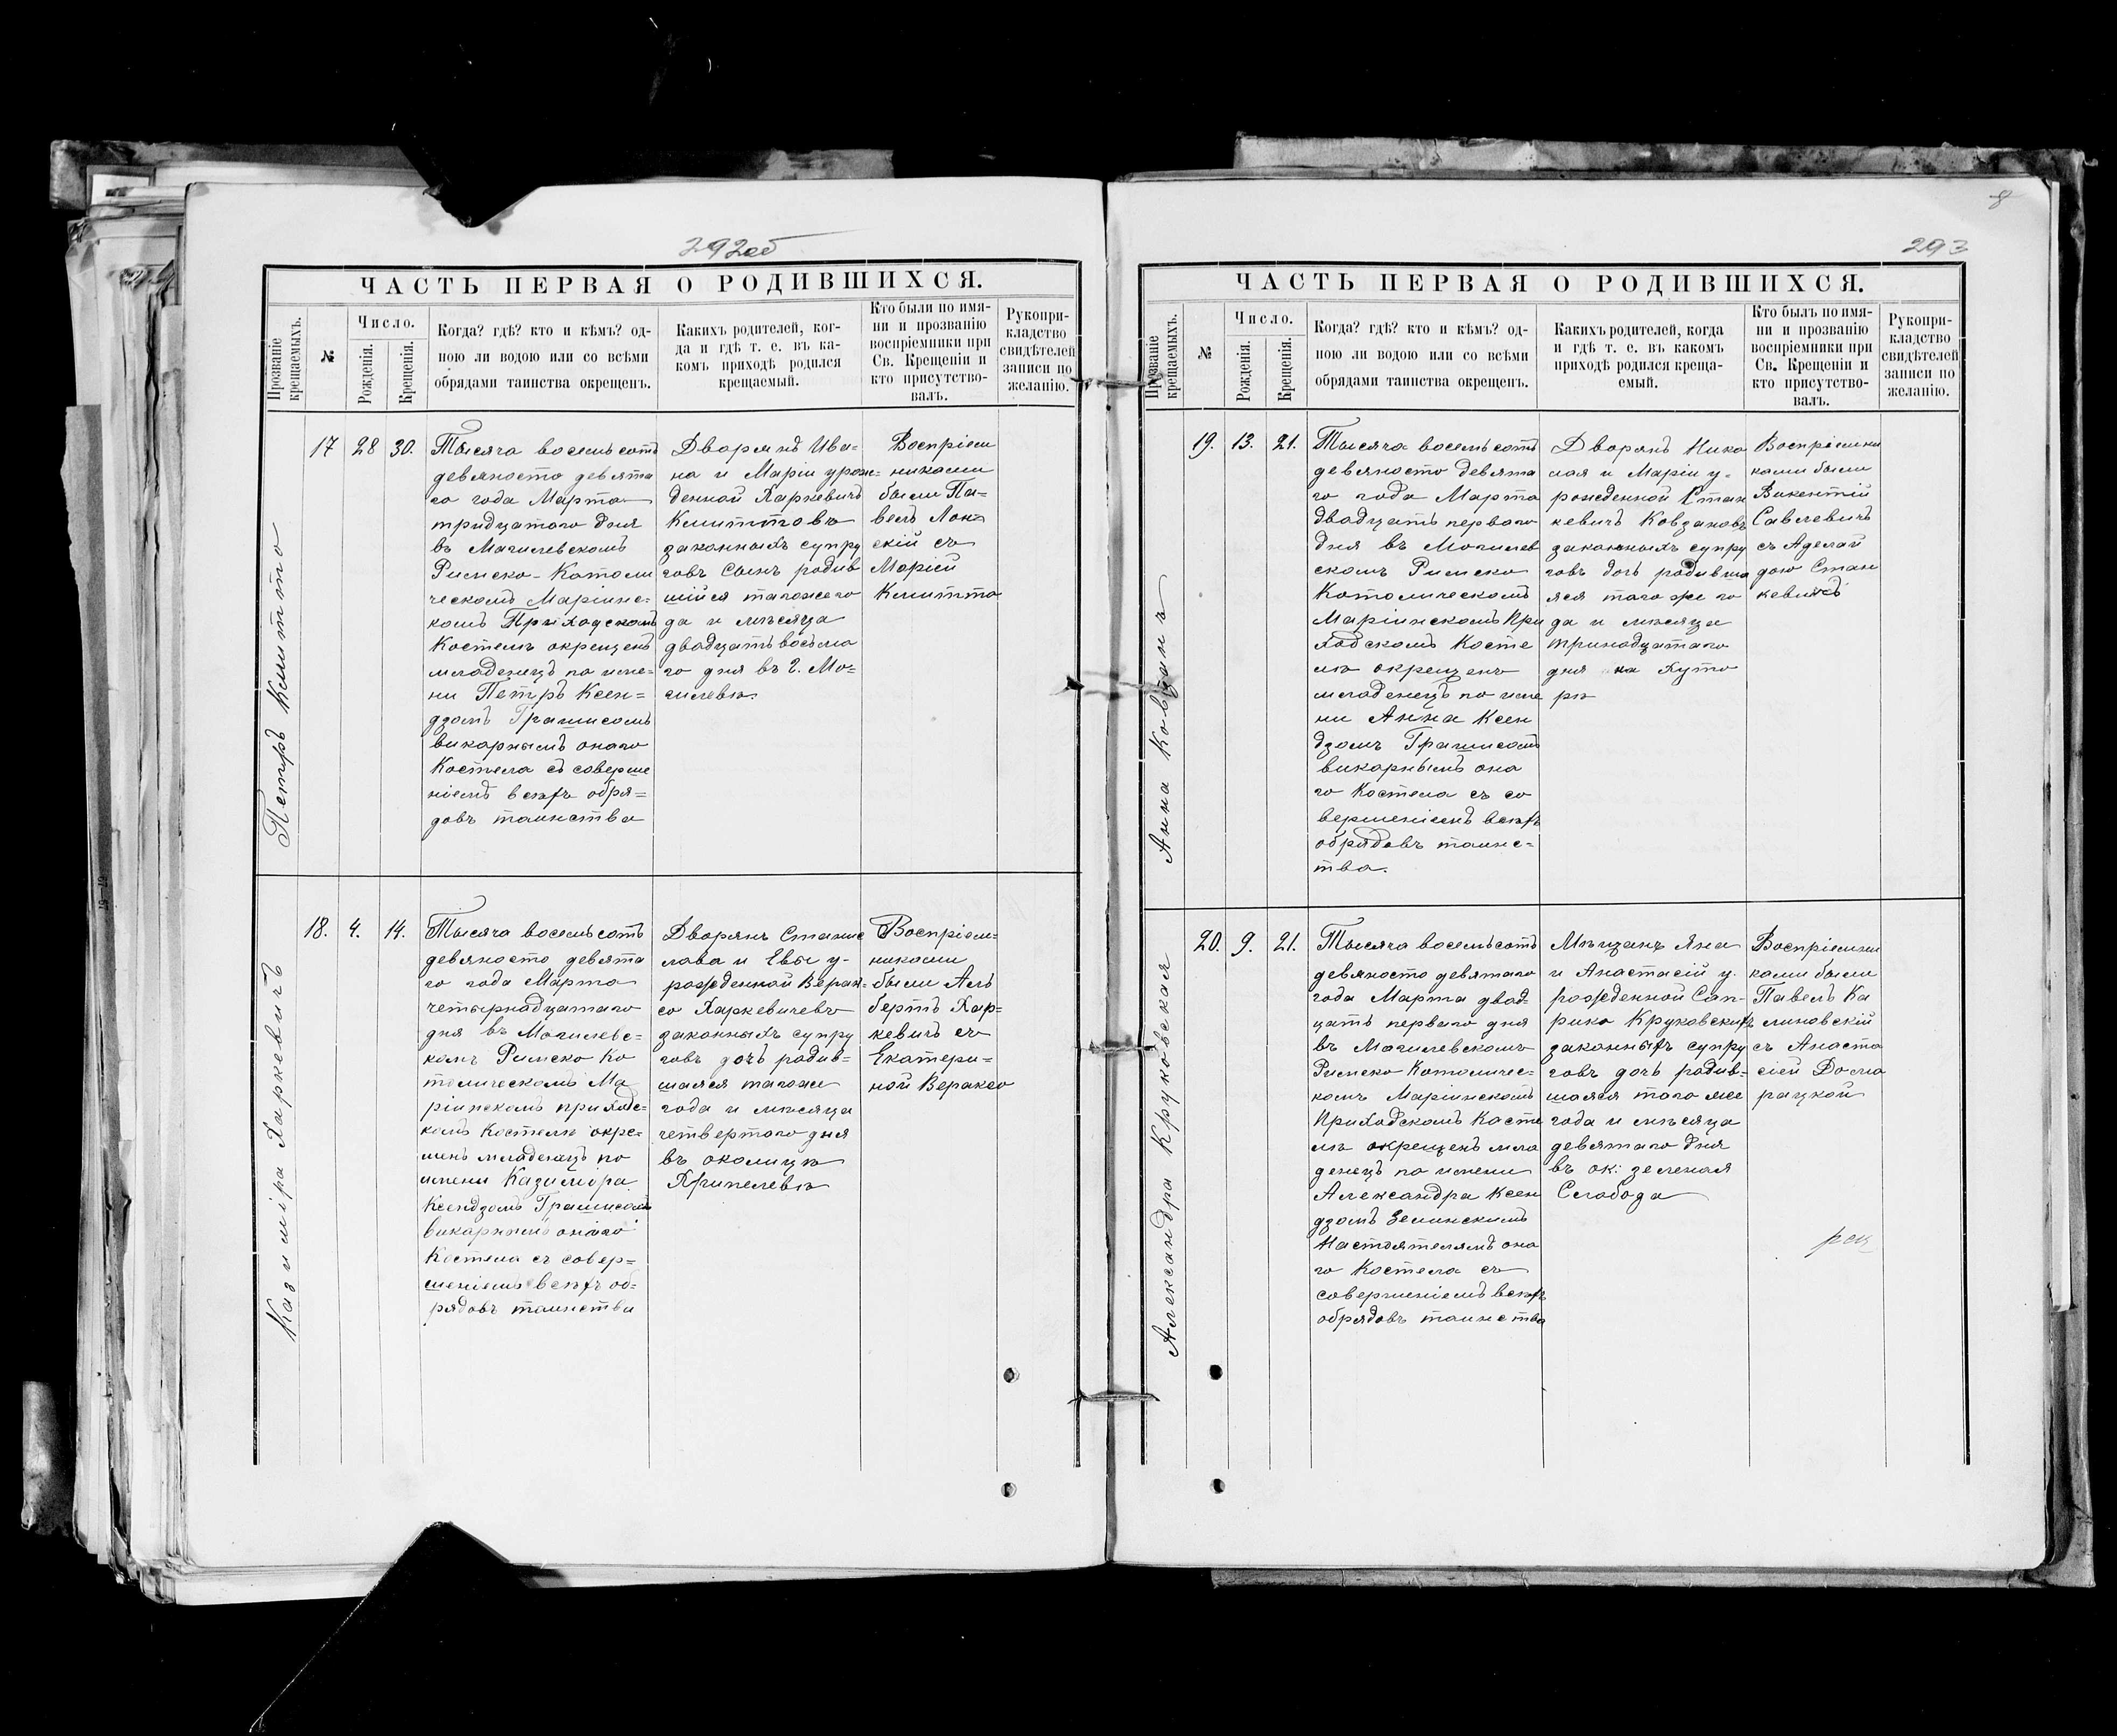 292об
ЧАСТЬ ПЕРВАЯ О РОДИВШИХСЯ.
Прозваніе крещаемыхъ.
№
Число.
Рожденія.
Крещенія.
Когда? гдѣ? кто и кѣмъ? од-
ною ли водою или со всѣми
обрядами таинства окрещенъ.
Какихъ родителей, ког-
да и гдѣ т. е. въ ка-
комъ приходѣ родился
крещаемый.
Кто были по имя-
ни и прозванію
воспріемники при
Св. Крещеніи и
кто присутство-
валъ.
Рукопри-
кладство
свидѣтелей
записи по
желанію.
Петръ Климто
17
28
30.
Тысяча восемьсотъ
девяносто девята
го года Марта
тридцатаго дня
въ Могилевскомъ
Римско-Католи
ческомъ Маріинс-
комъ Приходскомъ
Костелѣ окрещенъ
младенецъ по име-
ни Петръ Ксен-
дзомъ
викарнымъ онаго
Костела съ соверше
ніемъ всѣхъ обря-
довъ таинства
Дворянъ Ива-
на и Маріи урож-
денной Харкевичъ
законныхъ супру
говъ сынъ родив
шійся тогоже го
да и мѣсяца
двадцать восьма
го дня въ г. Мо-
гилевѣ.
Воспріем
никами
были Па-
велъ
скій съ
Маріей
Казиміра Харкевичъ
18.
4.
14.
Тысяча восемьсотъ
девяносто девята
го года Марта
четырнадцатаго
дня въ Могилевс-
комъ Римско Ка
толическомъ Ма
ріинскомъ приходс-
комъ Костелѣ окре-
щенъ младенецъ по
имени Казиміра
Ксендзомъ
викарнымъ онаго
Костела съ совер-
шеніемъ всѣхъ об-
рядовъ таинства
Дворянъ Станис
лава и Евы у-
рожденной Верак-
со Харкевичевъ
законныхъ супру
говъ дочь родив-
шаяся тогоже
года и мѣсяца
четвертаго дня
въ околицѣ
Хрипелевѣ
Воспріем-
никами
были Аль
бертъ Хар-
кевичъ съ
Екатери-
ной Вераксо
8
293
ЧАСТЬ ПЕРВАЯ О РОДИВШИХСЯ.
Прозваніе крещаемыхъ.
№
Число.
Рожденія.
Крещенія.
Когда? гдѣ? кто и кѣмъ? од-
ною ли водою или со всѣми
обрядами таинства окрещенъ.
Какихъ родителей, когда
и гдѣ т. е. въ какомъ
приходѣ родился креща-
емый.
Кто былъ по имя-
ни и прозванію
воспріемники при
Св. Крещеніи и
кто присутство-
валъ.
Рукопри-
кладство
свидѣтелей
записи по
желанію.
Анна Ковзанъ
19.
13.
21.
Тысяча восемьсотъ
девяносто девята
го года Марта
двадцать перваго
дня въ Могилев
скомъ Римско
Католическомъ
Маріинскомъ При
ходскомъ Косте
лѣ окрещенъ
младенецъ по име
ни Анна Ксен
дзомъ
викарнымъ она
го Костела съ со
вершеніемъ всѣхъ
обрядовъ таинс-
тва.
Дворянъ Нико
лая и Маріи у-
рожденной Стан
кевичъ Ковзановъ
законныхъ супру
говъ дочь родивша
яся того же го
да и мѣсяца
тринадцатаго
дня на Хуто
рѣ
Воспріемни
ками были
Викентій
Савлевичъ
съ Аделаи
дою Стан
кевичъ
Александра Круковская
20.
9.
21.
Тысяча восемьсотъ
девяносто девятаго
года Марта двад-
цать перваго дня
въ Могилевскомъ
Римско Католичес-
комъ Маріинскомъ
Приходскомъ Косте
лѣ окрещенъ мла
денецъ по имени
Александра Ксен
дзомъ Зелинскимъ
Настоятелямъ она
го Костела съ
совершеніемъ всѣхъ
обрядовъ таинства
Мѣщанъ Яна
и Анастасіи у-
рожденной Сап-
рико Круковскихъ
законныхъ супру
говъ дочь родив-
шаяся того же
года и мѣсяца
девятаго дня
въ ок: зеленая
Слобода
Воспріемни
ками были
Павелъ Ка
линовскій
съ Анаста
сіей Дома
рацкой